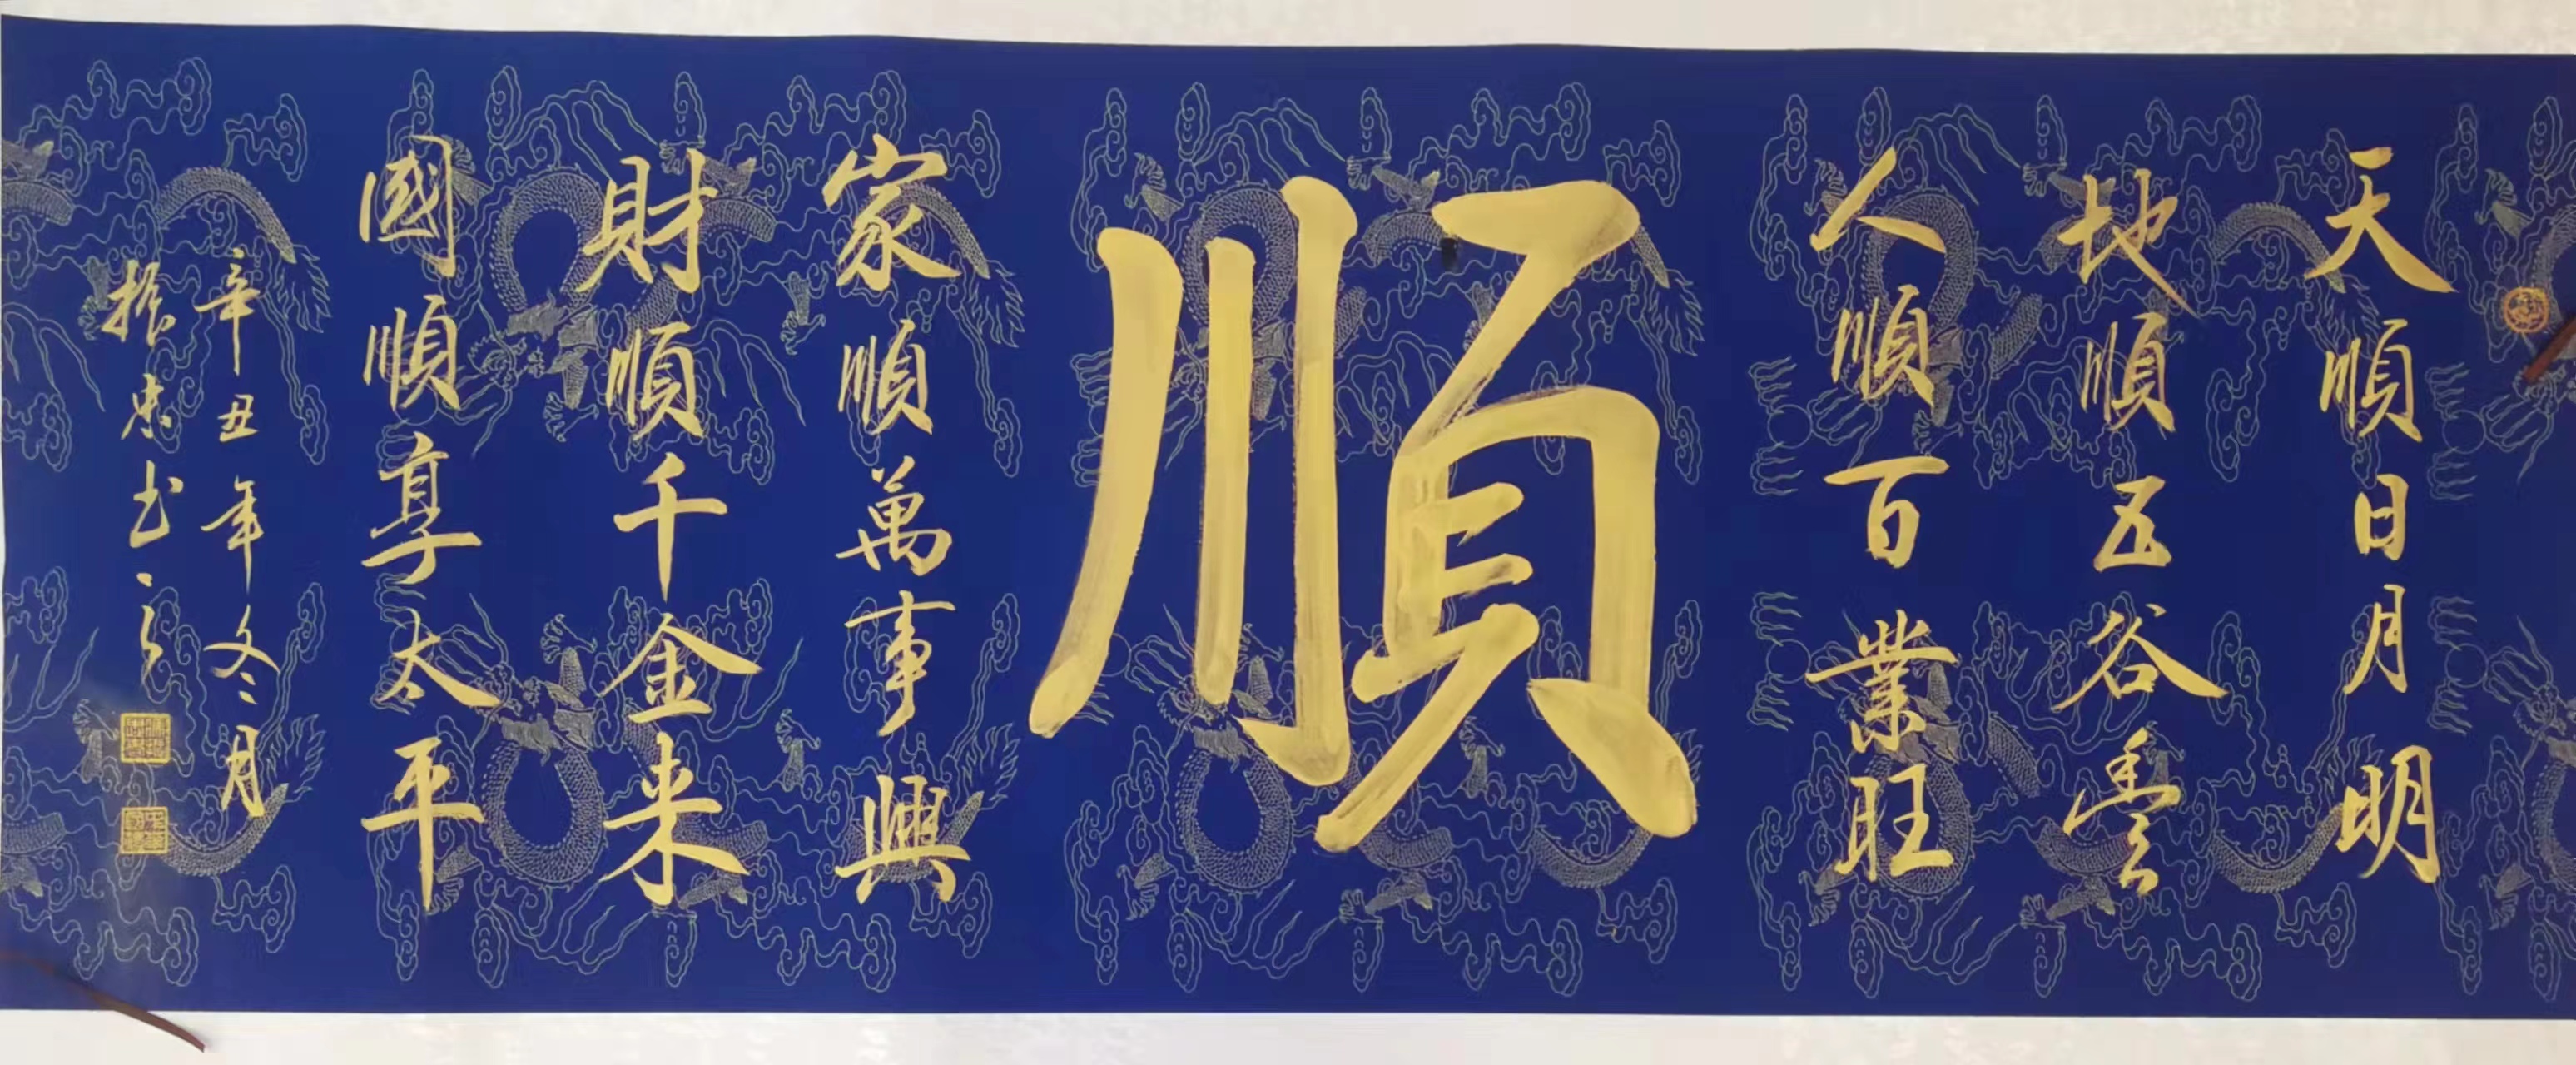 天順日月明
地順五谷豐
人順百業旺
順
家順萬事興
財順千金来
國順享太平
辛丑年冬月
振忠书